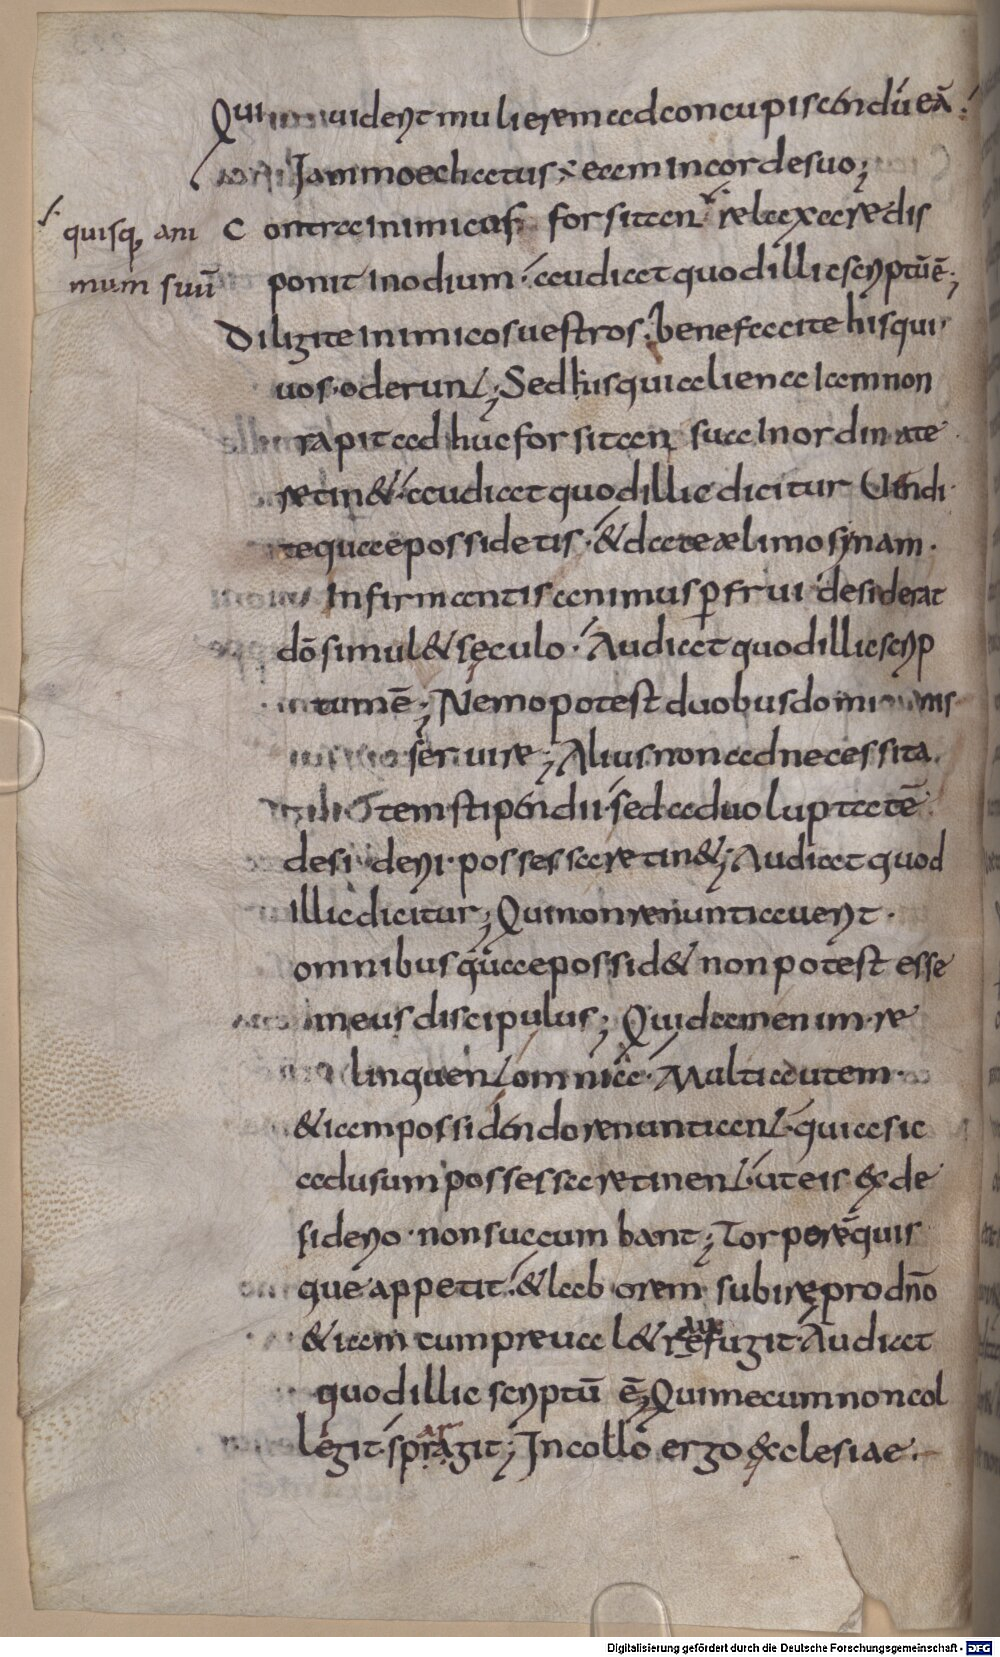 Qui viderit mulierem ad concupiscendū eā.
Jam moechatus ÷ eam in corde suo;
quisq; ani
mum suū
Contra inimicos forsitan relaxare dis
ponit in odium. audiat quod illic scriptū ē;
Diligite inimicos vestros. benefacite his qui
vos oderunt; Sed his qui aliena iam non
rapit adhuc forsitan sua inordinate
retin&. audiat quod illic dicitur Vendi
te quae possidetis. & date ælimosynam.
Infirmantis animus ꝑfrui desiderat
dō simul & sęculo. Audiat quod illic scrip
tum ē; Nemo potest duobus dominis
servire; Alius non ad necessita
tem stipendii. sed ad voluptatē
desideri. possessa retin&; Audiat quod
illic dicitur; Qui non renuntiaverit.
omnibus quae possid& non potest esse
meus discipulus; Quidam enim re
linquent omnia. Multi autem.
& iam possidendo renuntiant. quia sic
ad usum possessa retinent. ut eis ex de
siderio. non succumbant; Torporē quis
que appetit. & laborem subire pro dn̄o
& iam cum prevał& refugit. Audiat
quod illic scriptū ē; Qui mecum non col
legit. spragit; In collo ergo ęcclesiae.
Digitalisierung gefördert durch die Deutsche Forschungsgemeinschaft - DFG